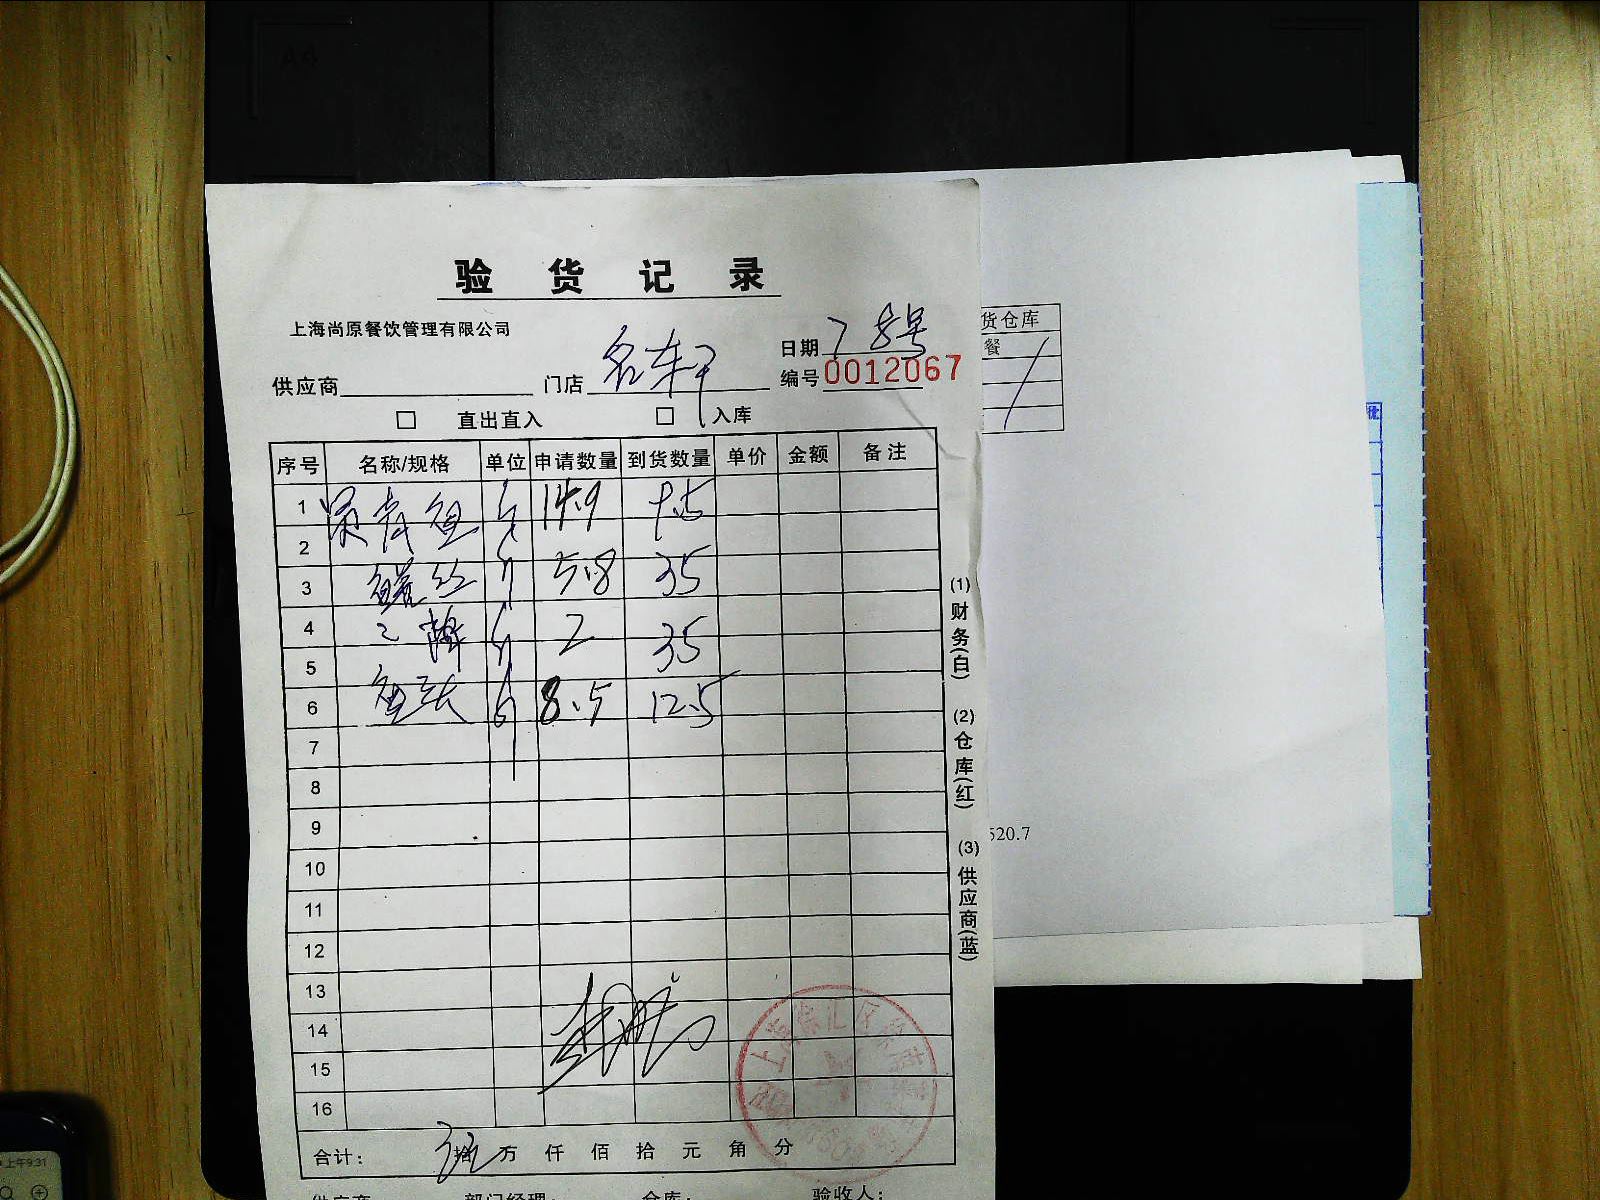 验货记录
上海尚原餐饮管理有限公司
日期 7 8号
供应商 门店 编号 0012067
直出直入 入库
货仓库
餐
序号 名称/规格 单位 申请数量 到货数量 单价 金额 备注
1 青鱼 14.9 7.5
2
3 鳝丝 5.8 35
4 2 35
5
6 鱼头 8.5 12.5
7
8
9
10
11
12
13
14
15
16
合计: 拾 万 仟 佰 拾 元 角 分
供应商 部门经理: 仓库: 验收人:
(1)财务(白) (2)仓库(红) (3)供应商(蓝)
520.7
上午9:31
A4